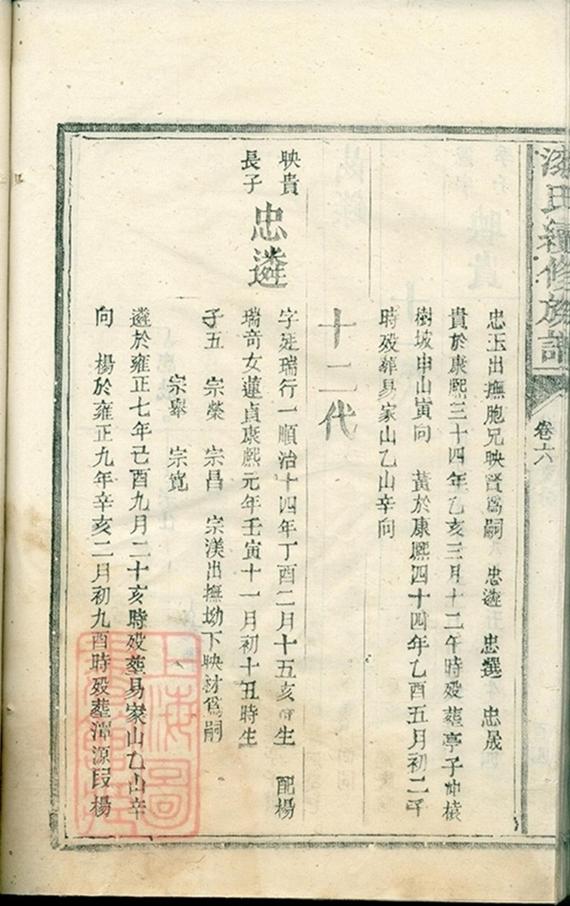 氏續修族譜
卷六
忠玉出撫胞兄映賢爲嗣 忠遴 忠選 忠晟
貴於康熙三十四年乙亥三月十二午時歿葬亭子冲檬
樹坡申山寅向 黃於康熙四十四年乙酉五月初二
時歿葬易家山乙山辛向
十二代
映貴長子 忠遴
字廷瑞行一順治十四年丁酉二月十五亥時生 配楊
瑞奇女蓮貞康熙元年壬寅十一月初十丑時生
子五 宗榮 宗昌 宗渼出撫坳下映材爲嗣
宗舉 宗寬
遴於雍正七年己酉九月二十亥時歿葬易家山乙山辛
向 楊於雍正九年辛亥二月初九酉時歿葬潭源段楊
上海圖